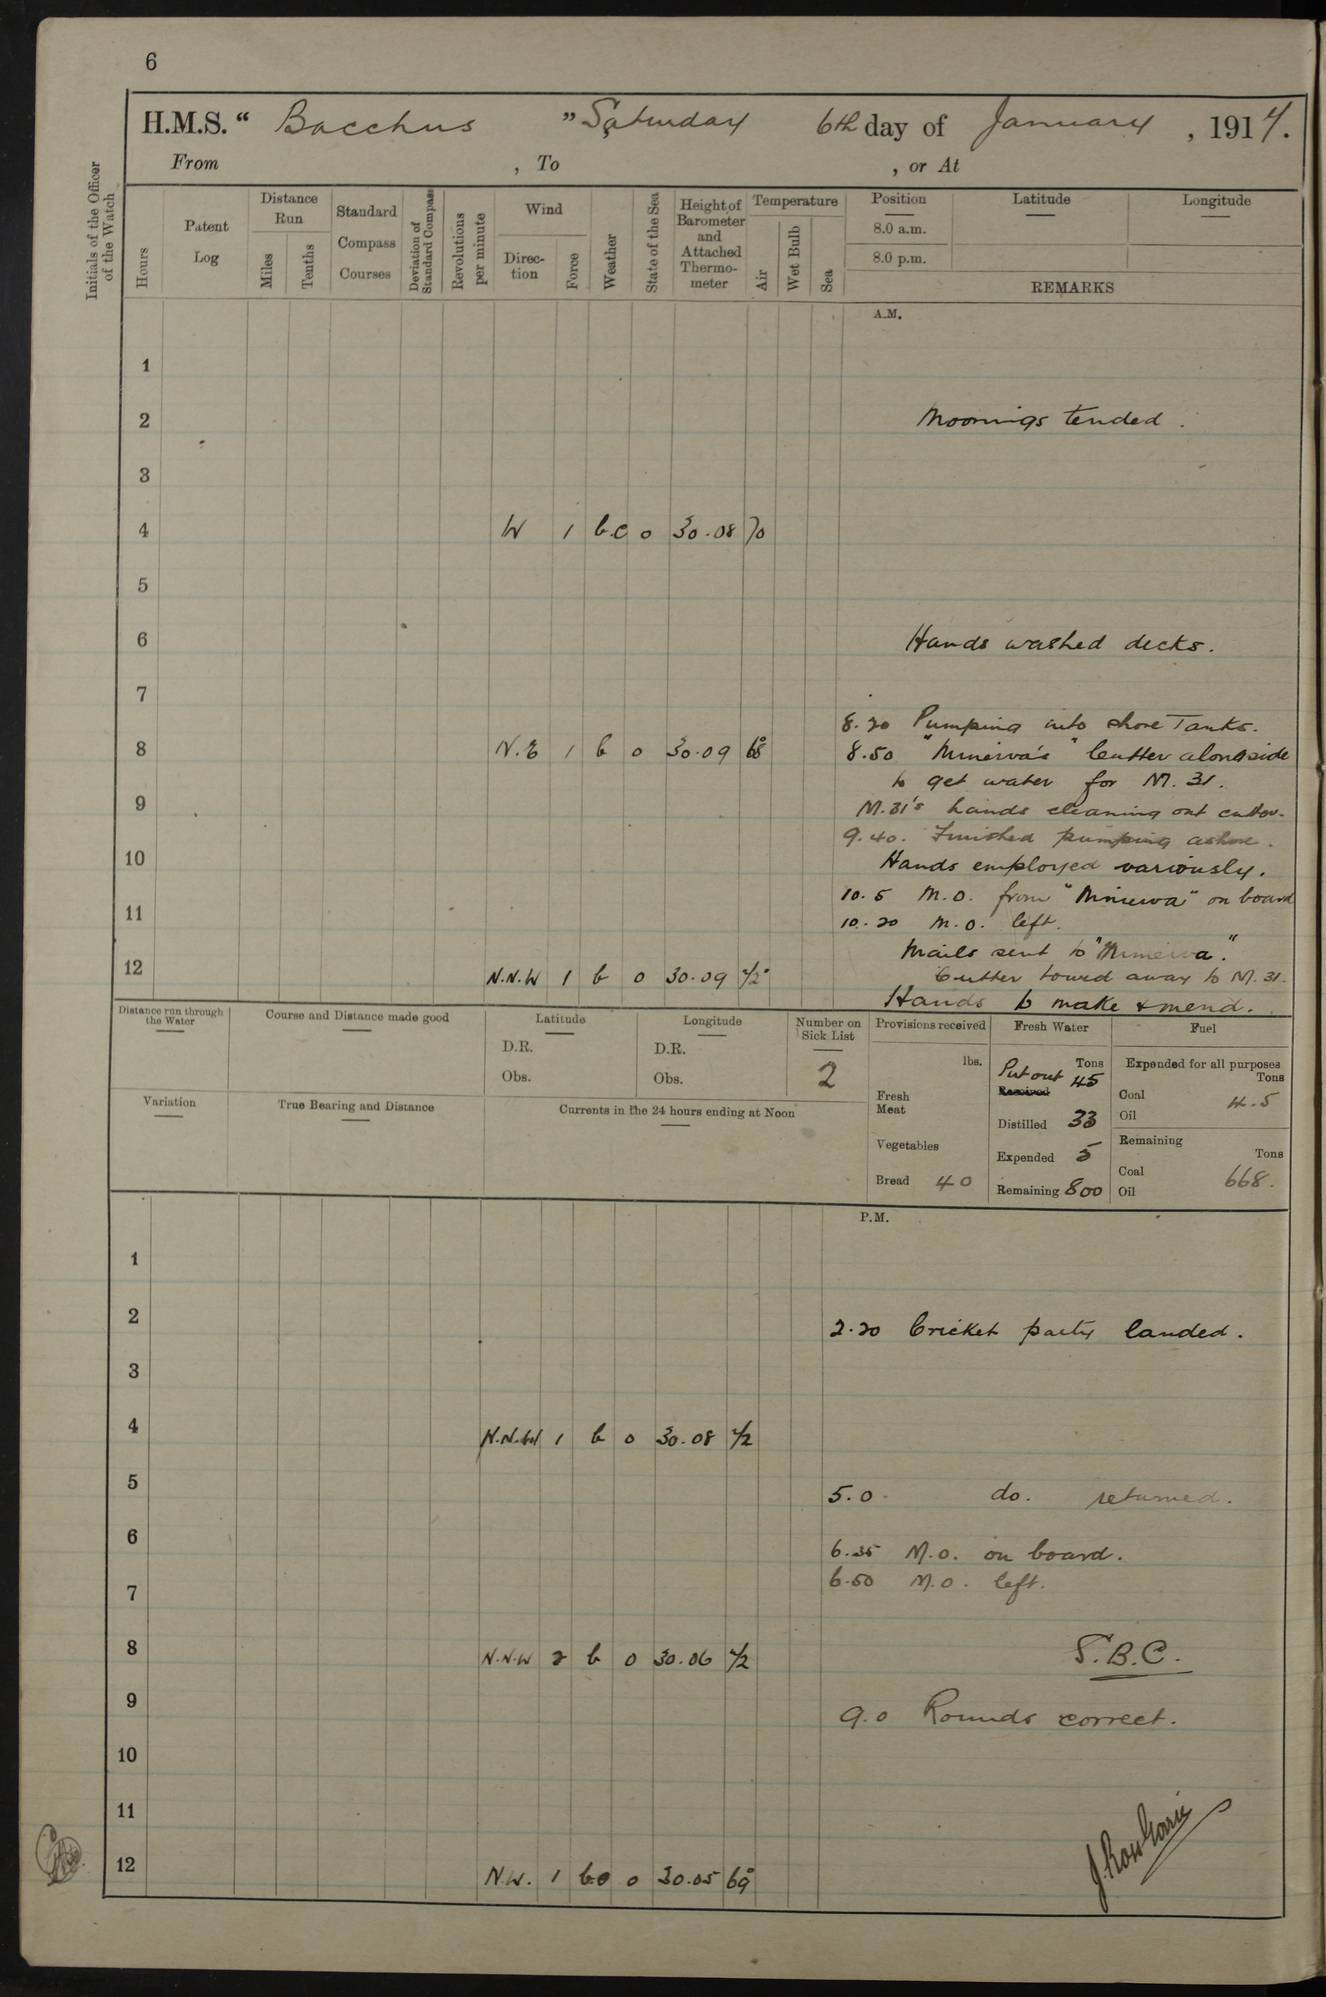 6
H.M.S. “ Bacchus ” Saturday 6th day of January , 1917.
From , To , or At
Initials of the Officer of the Watch
Hours
Patent Log
Distance Run
Miles
Tenths
Standard Compass Courses
Deviation of Standard Compass
Revolutions per minute
Wind
Direction
Force
Weather
State of the Sea
Height of Barometer and Attached Thermometer
Temperature
Air
Wet Bulb
Sea
Position Latitude Longitude
8.0 a.m.
8.0 p.m.
REMARKS
A.M.
1
2 Moorings tended .
3
4 W 1 b.c 0 30.08 70
5
6 Hands washed decks.
7
8.20 Pumping into shore Tanks.
8 N.E 1 b 0 30.09 68°
8.50 "Minerva's" Cutter alongside
to get water for M. 31.
9 M.31's hands cleaning out cutter.
9.40. Finished pumping ashore.
10 Hands employed variously.
10.5 M.O. from "Minerva" on board
11 10.20 M.O. left.
Mails sent to "Minerva".
12 N.N.W 1 b 0 30.09 72° Cutter towed away to M.31.
Hands to make & mend.
Distance run through the Water
Course and Distance made good
Latitude
D.R.
Obs.
Longitude
D.R.
Obs.
Number on Sick List
2
Variation
True Bearing and Distance
Currents in the 24 hours ending at Noon
Provisions received
lbs.
Fresh Meat
Vegetables
Bread 40
Fresh Water
Tons
Put out 45
Received
Distilled 33
Expended 5
Remaining 800
Fuel
Expended for all purposes
Tons
Coal 4.5
Oil
Remaining
Tons
Coal 668.
Oil
P.M.
1
2 2.20 Cricket party landed.
3
4 N.N.W 1 b 0 30.08 72
5 5.0 do. returned.
6 6.35 M.O. on board.
6.50 M.O. left.
7
8 N.N.W 2 b 0 30.06 72 S.B.C.
9 9.0 Rounds correct.
10
11
12 N.W. 1 bc 0 30.05 69°